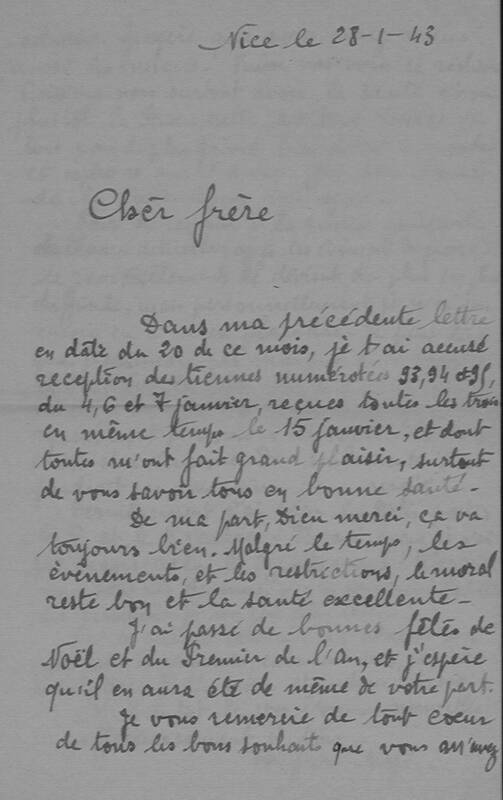 Nice le 28-1-43
Cher frère
Dans ma précédente lettre
en date du 20 de ce mois, je t'ai accusé
reception des tiennes numérotées 93, 94 et 95,
du 4, 6 et 7 janvier, reçues toutes les trois
en même temps le 15 janvier, et dont
toutes m'ont fait grand plaisir, surtout
de vous savoir tous en bonne santé-
De ma part, Dieu merci, ça va
toujours bien. Malgré le temps, les
évènements, et les restrictions, le moral
reste bon et la santé excellente-
J'ai passé de bonnes fêtes de
Noël et du Premier de l'an, et j'espère
qu'il en aura été de même de votre part.
Je vous remercie de tout coeur
de tous les bons souhaits que vous m'avez